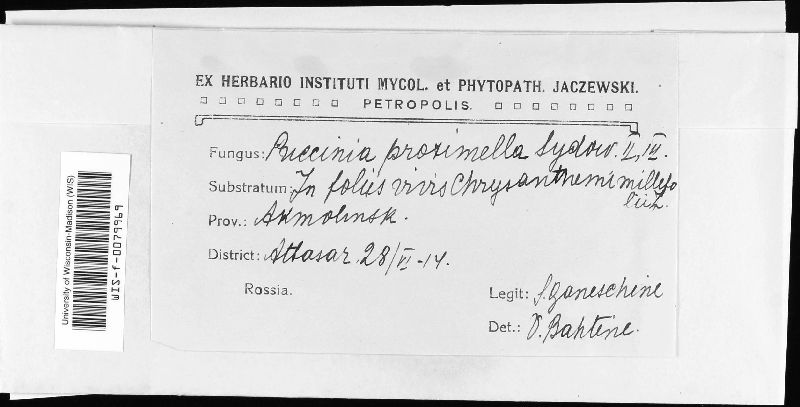 EX HERBARIO INSTITUTI MYCOL. et PHYTOPATH. JACZEWSKI.
PETROPOLIS.
Fungus: Puccinia proximella Sydow. II, III.
Substratum: In foliis vivis Chrysanthemi millefo
lii L.
Prov.: Akmolinsk.
District: Attasar. 28/VI-14.
Rossia.
Legit: S. Ganeschine
Det.: V. Bahtine.
University of Wisconsin-Madison (WIS)
WIS-f-0079969